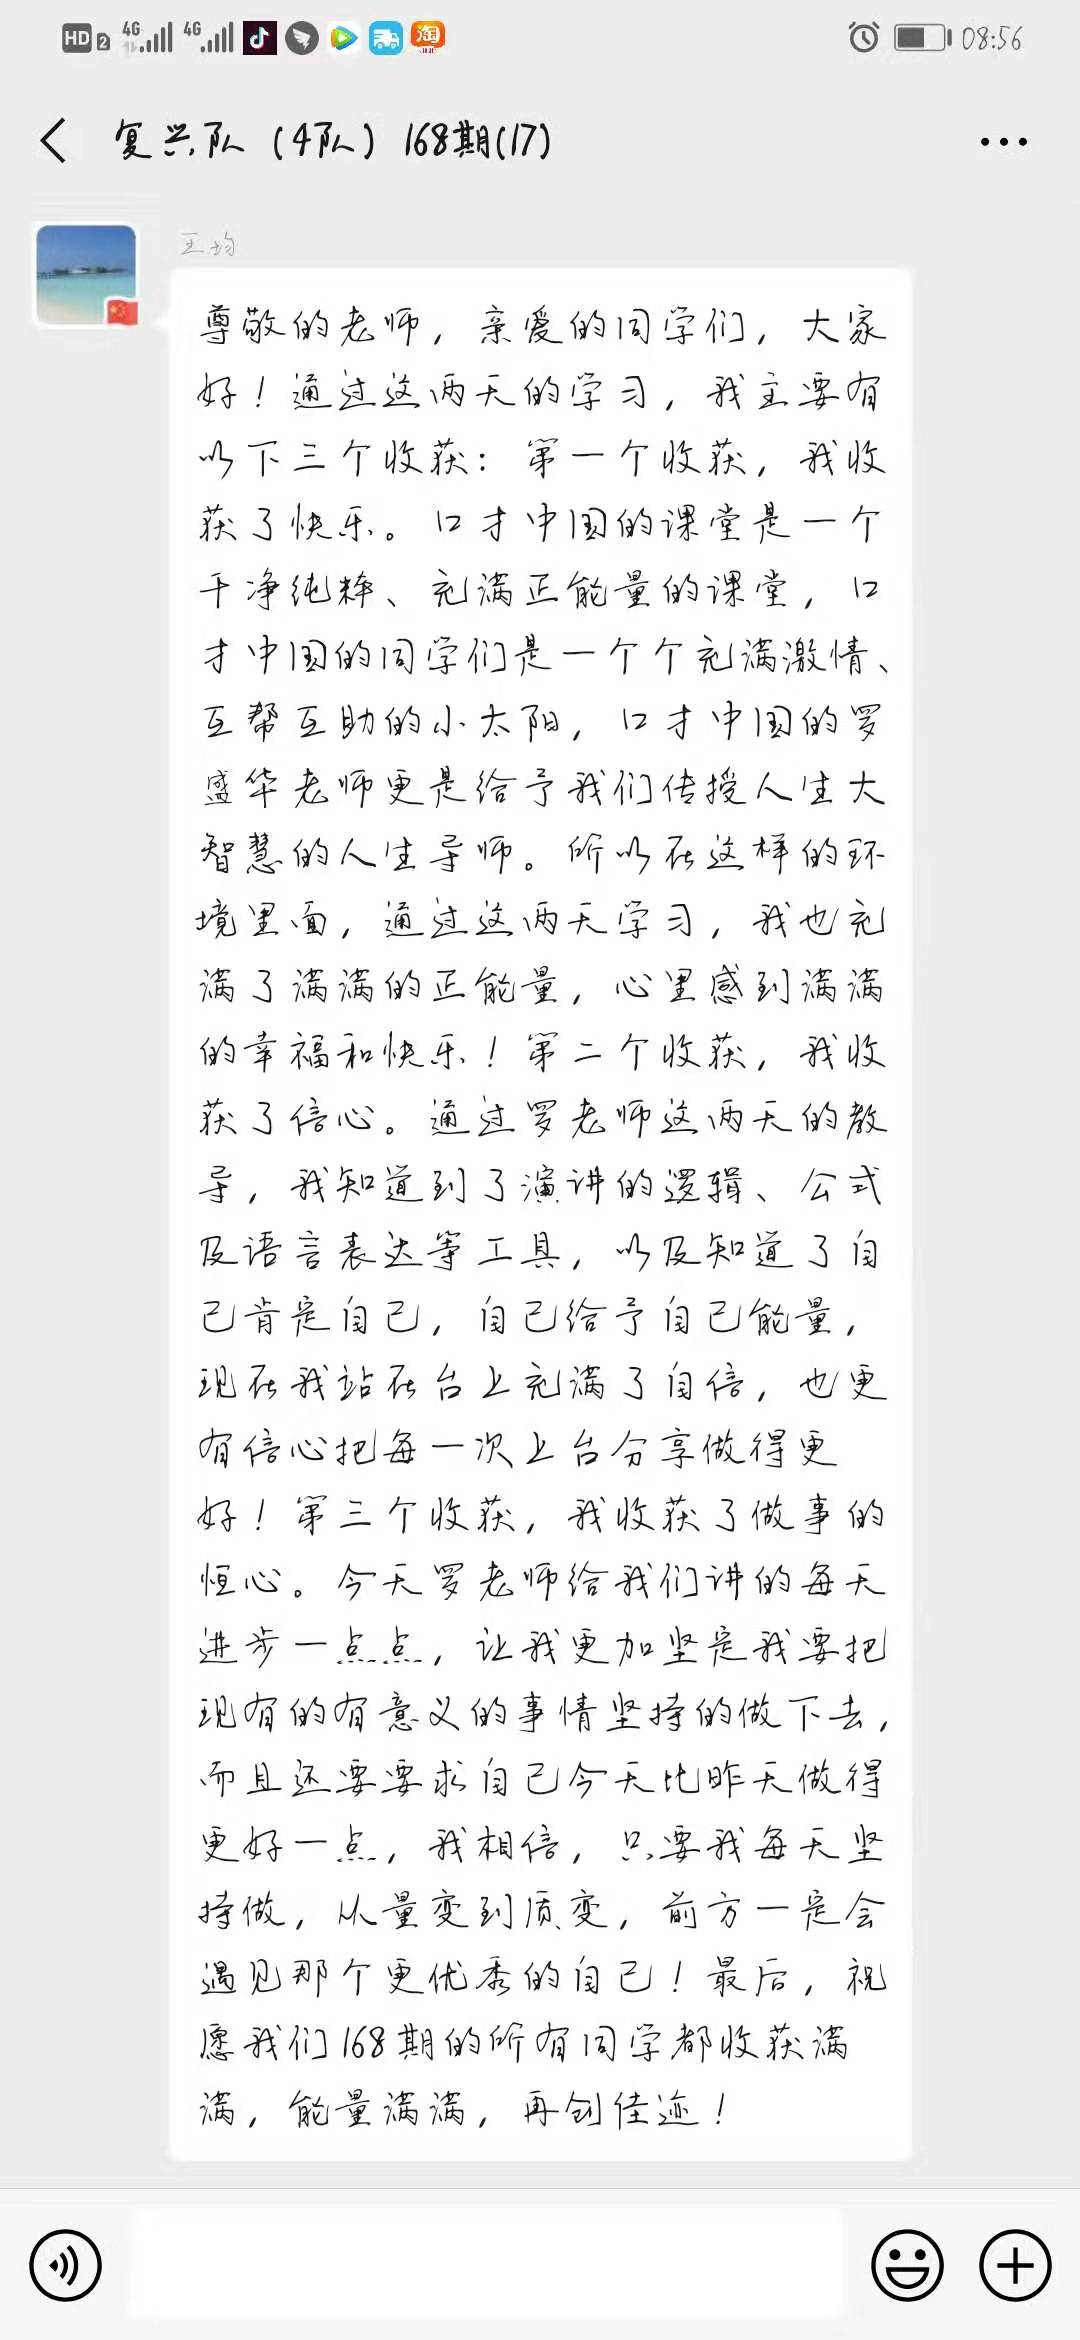 HD 2 4G 4G 淘 08:56
复兴队（4队）168期(17)
王均
尊敬的老师，亲爱的同学们，大家
好！通过这两天的学习，我主要有
以下三个收获：第一个收获，我收
获了快乐。口才中国的课堂是一个
干净纯粹、充满正能量的课堂，口
才中国的同学们是一个个充满激情、
互帮互助的小太阳，口才中国的罗
盛华老师更是给予我们传授人生大
智慧的人生导师。所以在这样的环
境里面，通过这两天学习，我也充
满了满满的正能量，心里感到满满
的幸福和快乐！第二个收获，我收
获了信心。通过罗老师这两天的教
导，我知道到了演讲的逻辑、公式
及语言表达等工具，以及知道了自
己肯定自己，自己给予自己能量，
现在我站在台上充满了自信，也更
有信心把每一次上台分享做得更
好！第三个收获，我收获了做事的
恒心。今天罗老师给我们讲的每天
进步一点点，让我更加坚定我要把
现有的有意义的事情坚持的做下去，
而且还要要求自己今天比昨天做得
更好一点，我相信，只要我每天坚
持做，从量变到质变，前方一定会
遇见那个更优秀的自己！最后，祝
愿我们168期的所有同学都收获满
满，能量满满，再创佳迹！